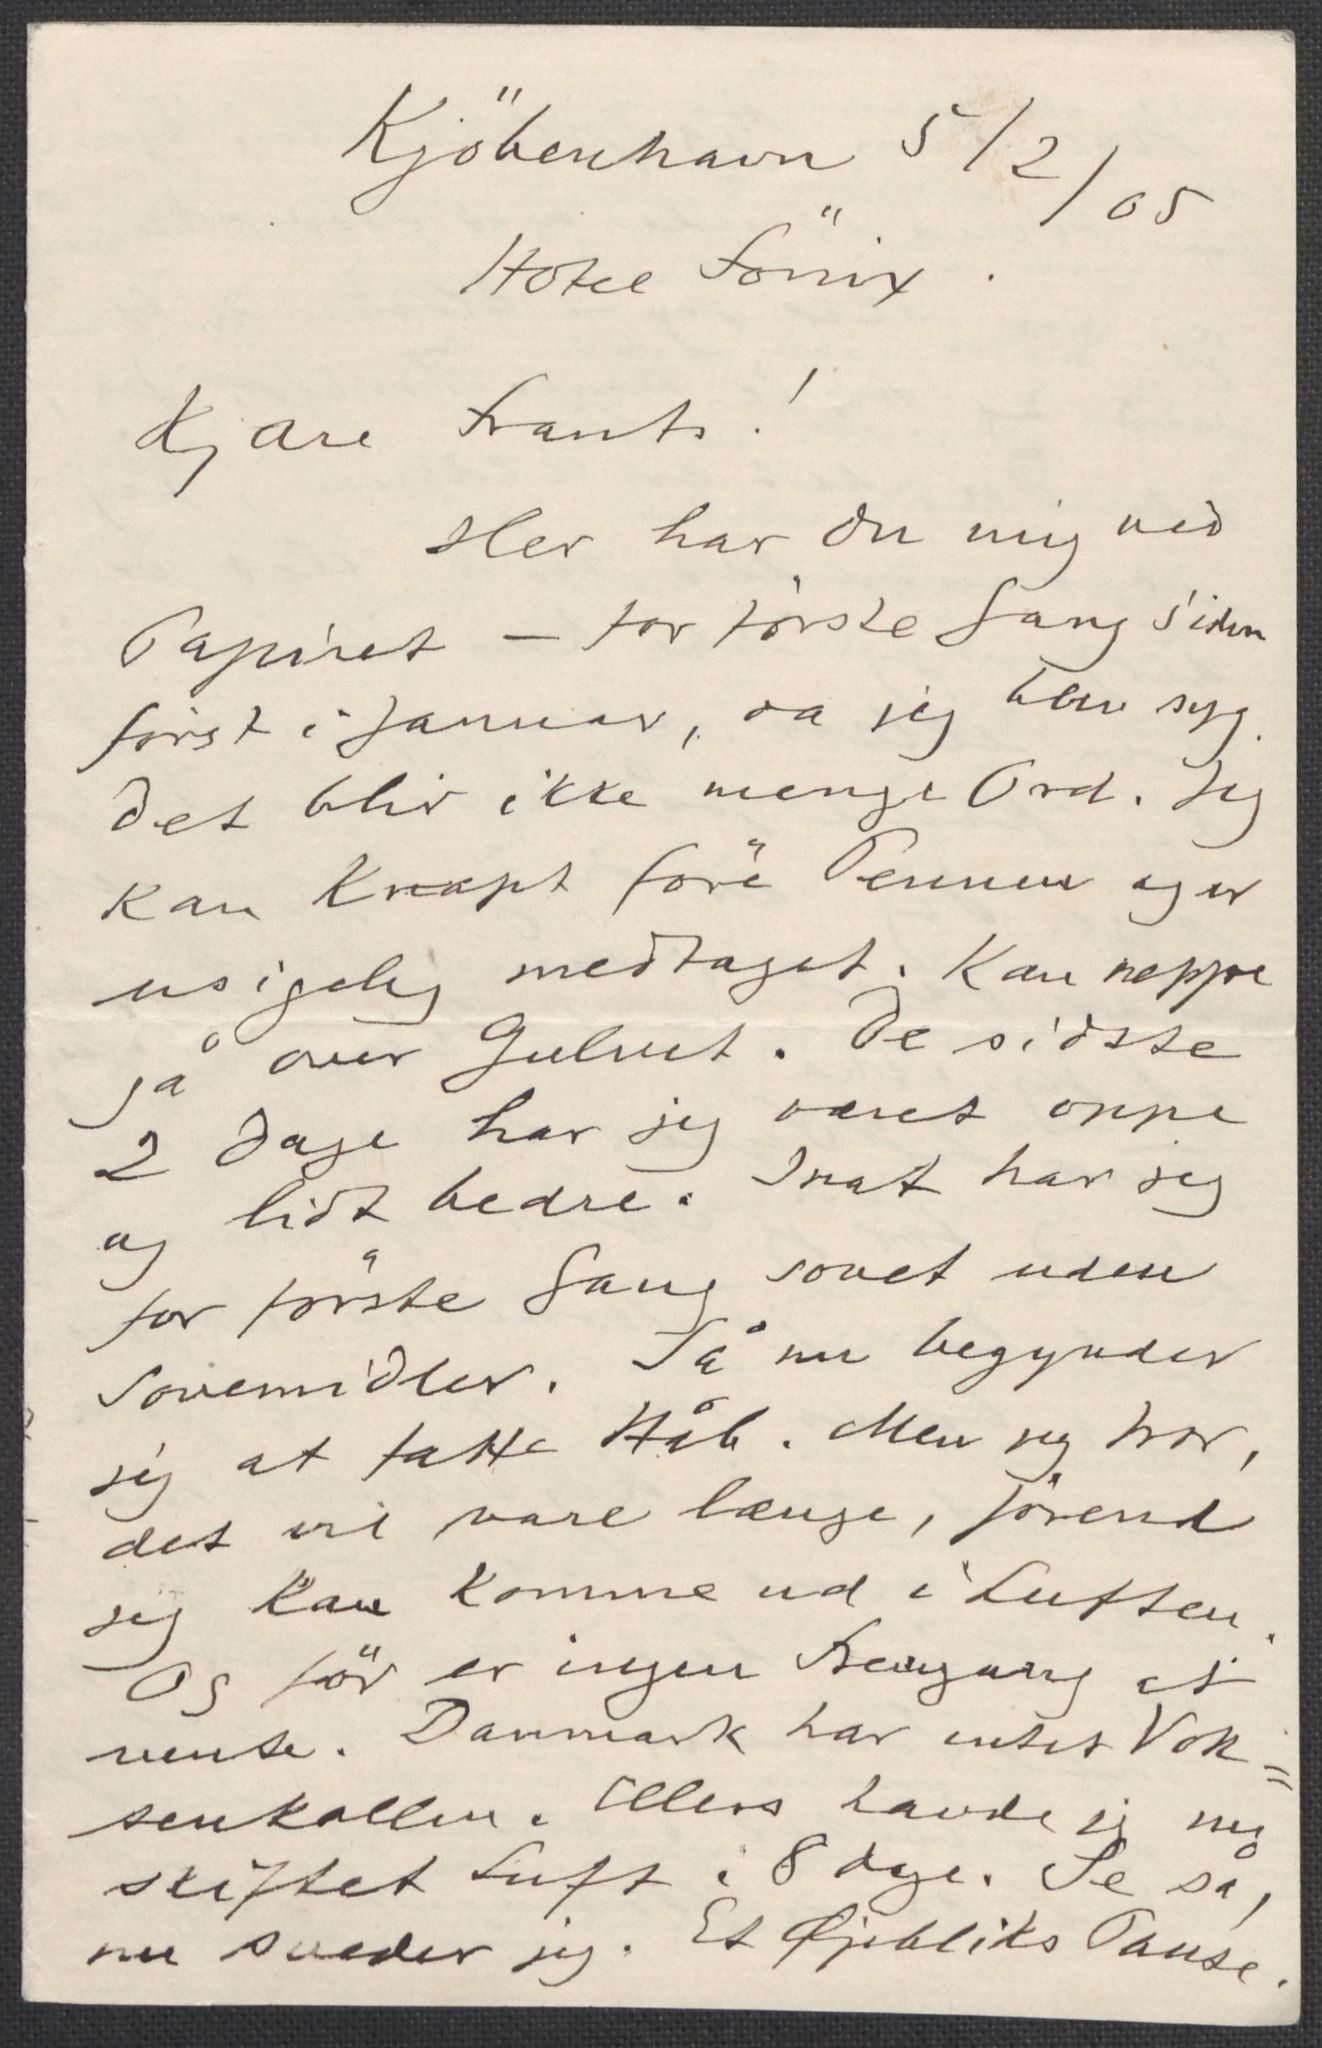 Kjöbenhavn 5/2/05
Hotel Fönix.
Kjære Frants!
Her har du mig ved
Papiret – for förste Gang siden
först i Januar, da jeg blev syg.
Det blir ikke mange Ord. Jeg
kan knapt före Pennen og er
usigelig medtaget. Kan neppe
gå over Gulvet. De sidste
2 Dage har jeg været oppe
og lidt bedre. Inat har jeg
for förste Gang sovet uden
Sovemidler. Så nu begynder
jeg at fatte Håb. Men jeg tror,
det vil vare længe, förend
jeg kan komme ud i Luften.
Og för er ingen Fremgang at
vente. Danmark har intet Vok=
senkollen. Ellers havde jeg nu
skiftet Luft i 8 dage. Se så,
nu sveder jeg. Et Øjebliks Pause.